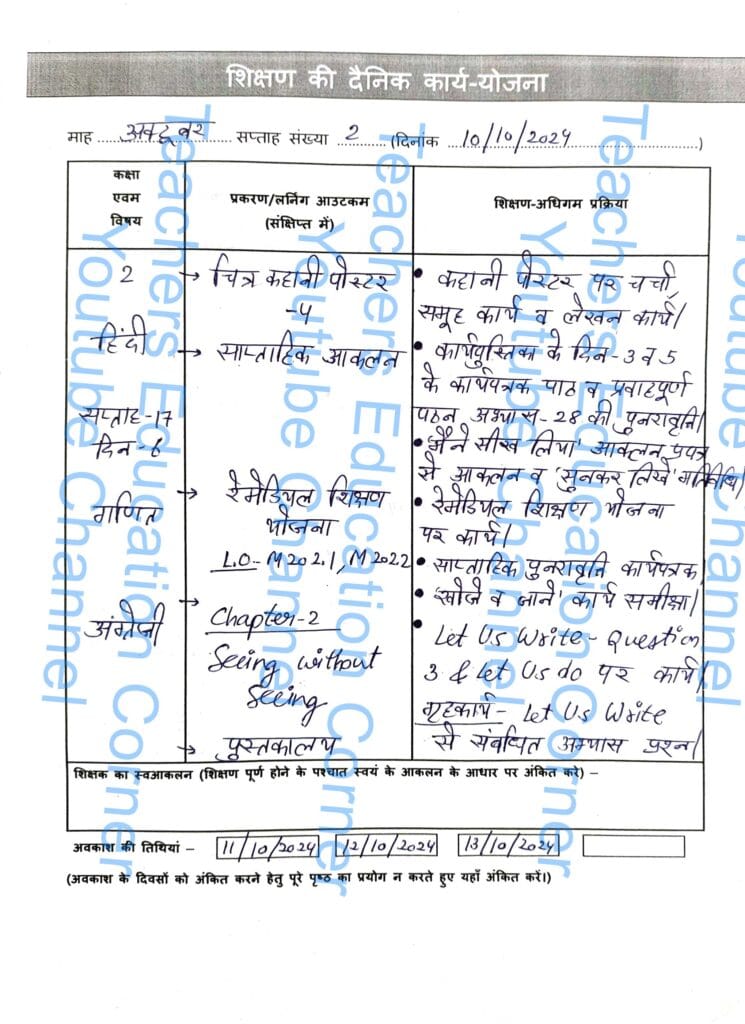 शिक्षण की दैनिक कार्य-योजना
माह ....अक्टूबर.... सप्ताह संख्या ..2.. (दिनांक ..10/10/2024..)
कक्षा
एवम
विषय
प्रकरण/लर्निंग आउटकम
(संक्षिप्त में)
शिक्षण-अधिगम प्रक्रिया
2
हिंदी
सप्ताह-17
दिन-6
गणित
अंग्रेजी
→ चित्र कहानी पोस्टर
-4
→ साप्ताहिक आकलन
→ रेमेडियल शिक्षण
योजना
L.O- M202.1, M2022
→ Chapter-2
Seeing without
Seeing
→ पुस्तकालय
• कहानी पोस्टर पर चर्चा,
समूह कार्य व लेखन कार्य।
• कार्यपुस्तिका के दिन-3 व 5
के कार्यपत्रक पाठ व प्रवाहपूर्ण
पठन अभ्यास-28 की पुनरावृति।
• 'मैंने सीख लिया' आकलन प्रपत्र
से आकलन व 'सुनकर लिखे' गतिविधि।
• रेमेडियल शिक्षण योजना
पर कार्य।
• साप्ताहिक पुनरावृति कार्यपत्रक,
• 'खोजे व जाने' कार्य समीक्षा।
• Let Us Write - Question
3 & Let Us do पर कार्य।
गृहकार्य - Let Us Write
से संबंधित अभ्यास प्रश्न।
शिक्षक का स्वआकलन (शिक्षण पूर्ण होने के पश्चात स्वयं के आकलन के आधार पर अंकित करे) –
अवकाश की तिथियां – 11/10/2024 12/10/2024 13/10/2024
(अवकाश के दिवसों को अंकित करने हेतु पूरे पृष्ठ का प्रयोग न करते हुए यहाँ अंकित करें।)
Teachers Education Corner
Youtube Channel
Teachers Education Corner
Youtube Channel
Teachers Education Corner
Youtube Channel
Channel